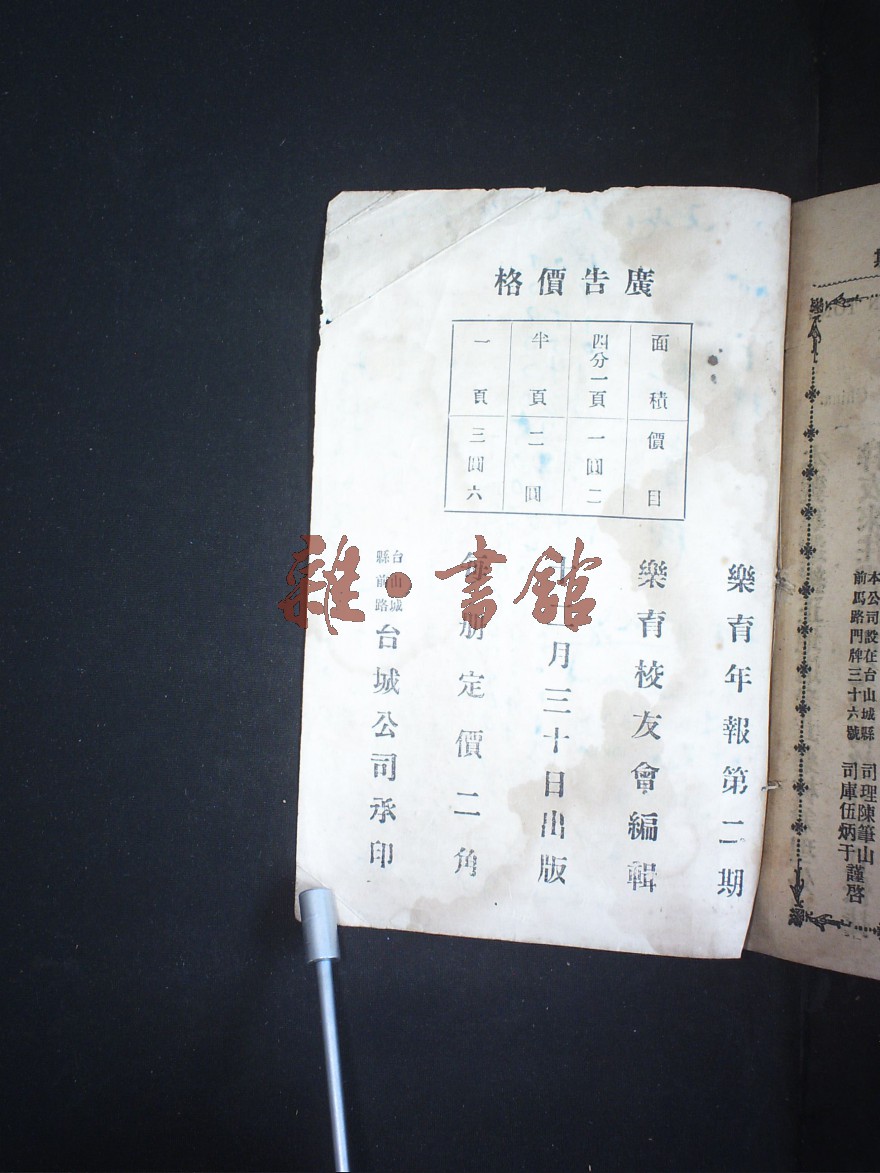 廣告價格
面積 價目
四分一頁 一圓二
半頁 二圓
一頁 三圓六
樂育年報第二期
樂育校友會編輯
十二月三十日出版
每册定價二角
台山城縣前路
台城公司承印
雜·書館
本公司設在台山城縣
前馬路門牌三十六號
司理陳筆山
司庫伍炳于謹啓